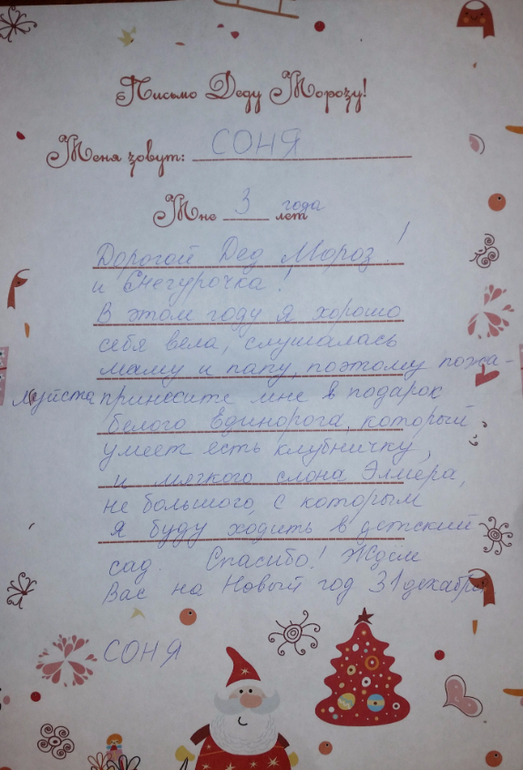 Письмо Деду Морозу!
Меня зовут: СОНЯ
Мне 3 года лет
Дорогой Дед Мороз!
и Снегурочка!
В этом году я хорошо
себя вела, слушалась
маму и папу, поэтому пожа-
луйста принесите мне в подарок
белого Единорога, который
умеет есть клубничку,
и мягкого слона Элмера,
не большого, с которым
я буду ходить в детский
сад. Спасибо! Ждём
Вас на Новый год 31 декабря
СОНЯ